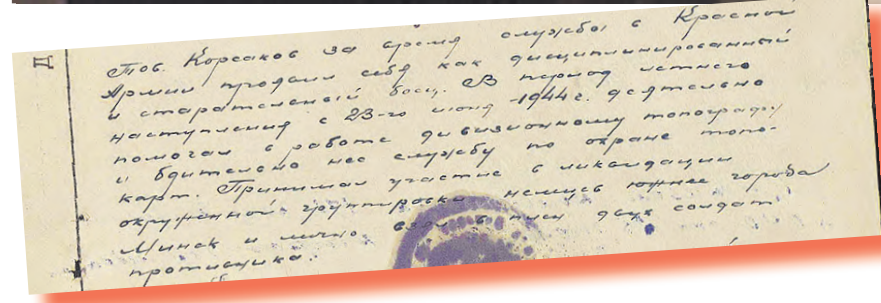 Д
Тов. Корсаков за время службы в Красной
Армии проявил себя как дисциплинированный
и старательный боец. В период летнего
наступления с 23-го июня 1944 г. деятельно
помогал в работе дивизионному топографу
и бдительно нес службу по охране топо-
карт. Принимал участие в ликвидации
окруженной группировки немцев южнее города
Минск и лично взял в плен двух солдат
противника.